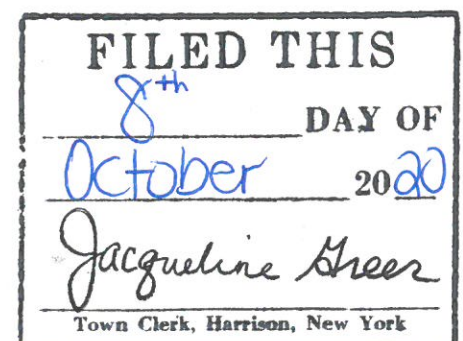 FILED THIS
8th DAY OF
October 2020
Jacqueline Greer
Town Clerk, Harrison, New York